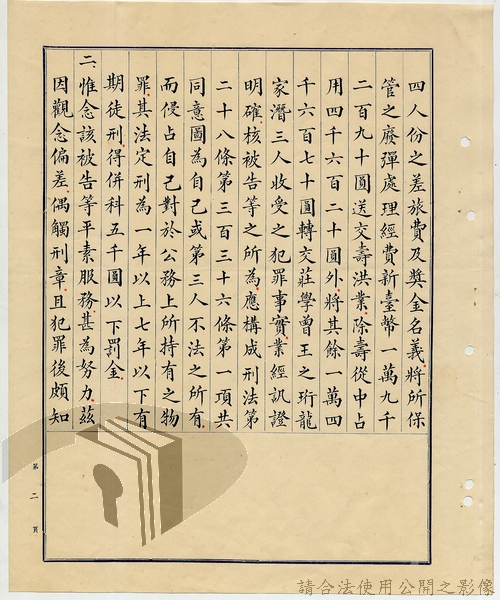 四人份之差旅費及獎金名義將所保
管之廢彈處理經費新臺幣一萬九千
二百九十圓送交壽洪業除壽從中占
用四千六百二十圓外將其餘一萬四
千六百七十圓轉交莊學曾王之珩龍
家潛三人收受之犯罪事實業經訊證
明確核被告等之所為應構成刑法第
二十八條第三百三十六條第一項共
同意圖為自己或第三人不法之所有
而侵占自己對於公務上所持有之物
罪其法定刑為一年以上七年以下有
期徒刑得併科五千圓以下罰金
二、惟念該被告等平素服務甚為努力茲
因觀念偏差偶觸刑章且犯罪後頗知
第二頁
請合法使用公開之影像